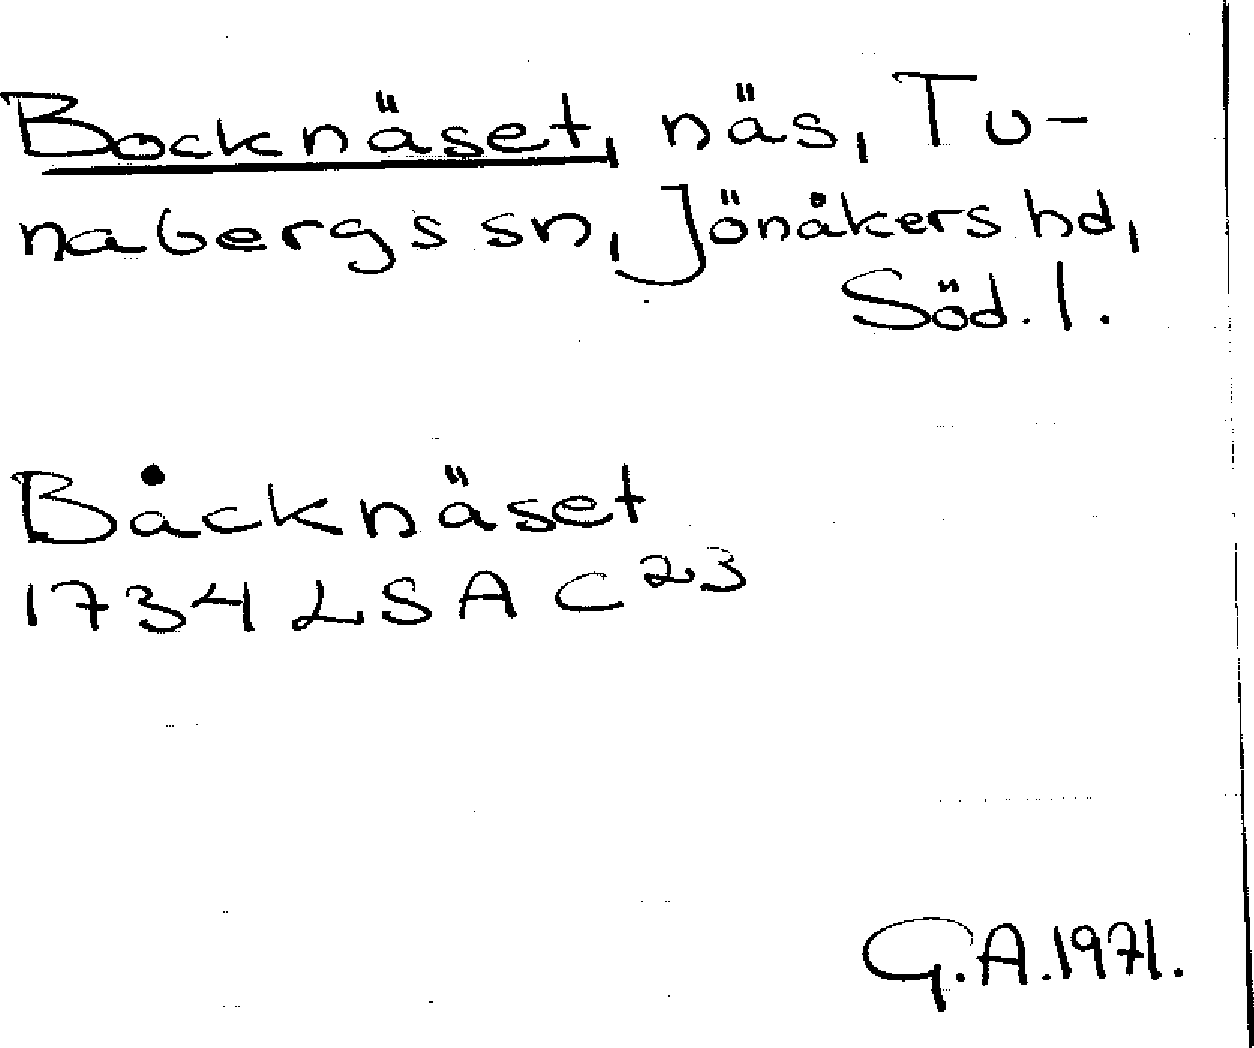 Bocknäset, näs, Tu-
nabergs sn, Jönåkers hd,
Söd. l.
Båcknäset
1734 LSA C 23
G.A. 1971.